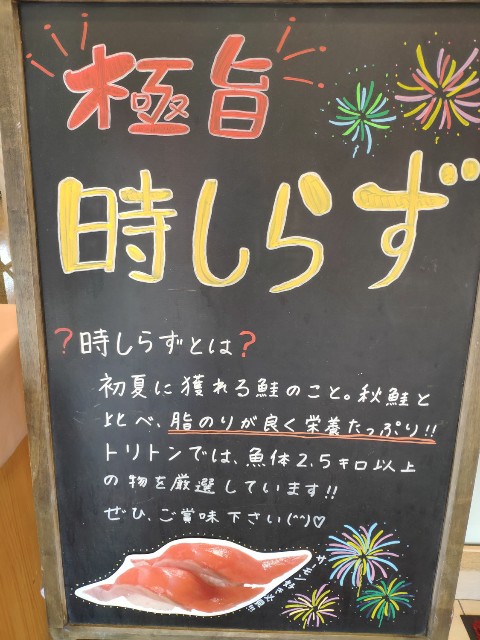 極旨
時しらず
?時しらずとは?
初夏に獲れる鮭のこと。秋鮭と
比べ、脂のりが良く栄養たっぷり!!
トリトンでは、魚体2.5キロ以上
の物を厳選しています!!
ぜひ、ご賞味下さい(^^)♡